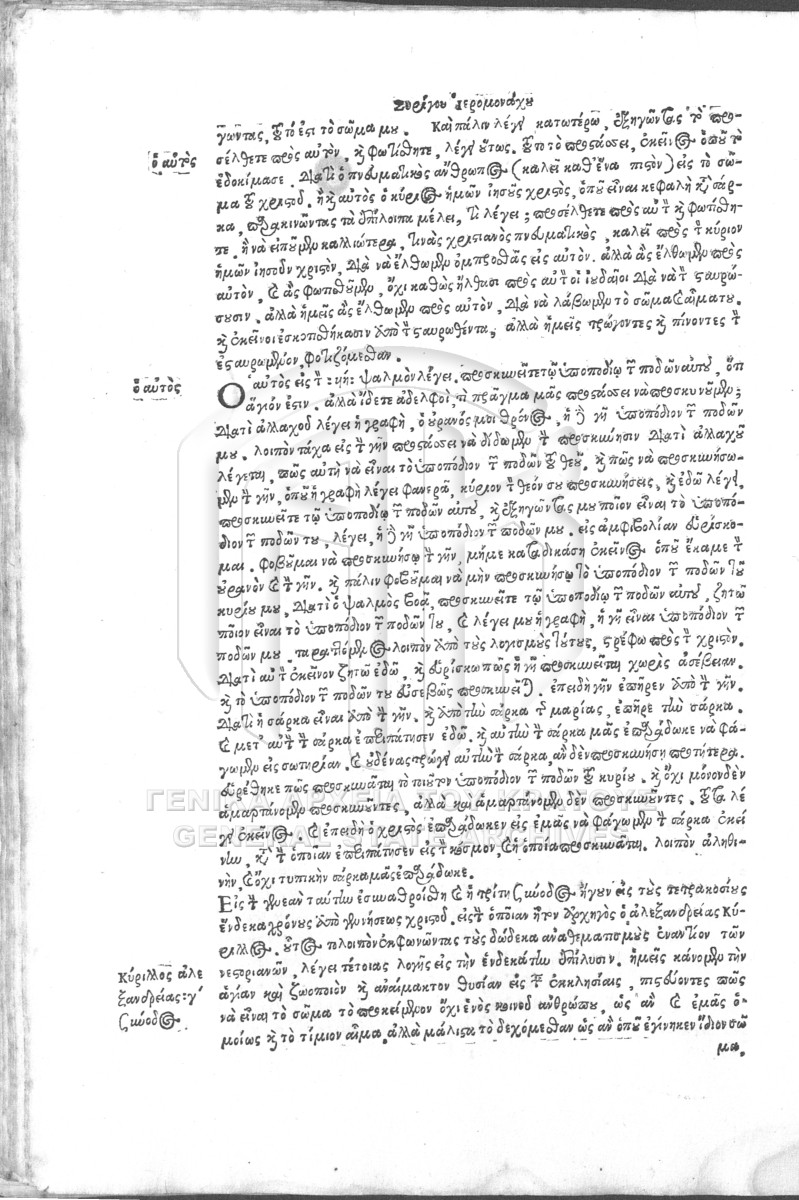 Συρίγου Ἱερομονάχου
γωντας, τοῦτό ἐστι τὸ σῶμα μου. Καὶ πάλιν λέγει κατωτέρω, ἐξηγῶντας τὸ προ-
ὁ αὐτὸς
σέλθετε πρὸς αὐτὸν, καὶ φωτίσθητε, λέγει οὕτως. τοῦτο τὸ προστάσσει, ἐκεῖνος ὁποῦ τὸ
ἐδοκίμασε. Διατὶ ὁ πνευματικὸς ἄνθρωπος (καλεῖ καθ' ἕνα πιστὸν) εἰς τὸ σῶ-
μα τοῦ χριστοῦ. ἢ καὶ αὐτὸς ὁ κύριος ἡμῶν ἰησοῦς χριστὸς, ὁποῦ εἶναι κεφαλὴ κατὰ σάρ-
κα, παρακινῶντας τὰ ἐπίλοιπα μέλει, τί λέγει; προσέλθετε πρὸς αὐτὸν καὶ φωτίσθη-
τε. ἢ νὰ εἰποῦμεν καλλιώτερα, τινὰς χριστιανὸς πνευματικὸς, καλεῖ πρὸς τὸν κύριον
ἡμῶν ἰησοῦν χριστὸν, διὰ νὰ ἔλθωμεν ὀμπροσθὰς εἰς αὐτὸν. ἀλλὰ ἂς ἔλθωμεν πρὸς
αὐτὸν, καὶ ἂς φωτισθοῦμεν, ὄχι καθὼς ἦλθασι πρὸς αὐτὸν οἱ ἰουδαῖοι διὰ νὰ τὸν σταυρώ-
σουσιν. ἀλλὰ ἡμεῖς ἂς ἔλθωμεν πρὸς αὐτὸν, διὰ νὰ λάβωμεν τὸ σῶμα καὶ αἷμα του.
καὶ ἐκεῖνοι ἐσκοτίσθηκασιν ἀπὸ τὸν σταυρωθέντα, ἀλλὰ ἡμεῖς τρώγοντες καὶ πίνοντες τὸν
ἐσταυρωμένον, φωτιζόμεσθαν.
ὁ αὐτὸς
Ὁ αὐτὸς εἰς τὸν ϟη ψαλμὸν λέγει. προσκυνεῖτε τῷ ὑποποδίῳ τῶν ποδῶν αὐτοῦ, ὅτι
ἅγιόν ἐστιν. ἀλλὰ ἴδετε ἀδελφοὶ, τί πρᾶγμα μᾶς προστάσσει νὰ προσκυνοῦμεν;
Διατὶ ἀλλαχοῦ λέγει ἡ γραφὴ, ὁ οὐρανός μοι θρόνος, ἡ δὲ γῆ ὑποπόδιον τῶν ποδῶν
μου. λοιπὸν τάχα εἰς τὴν γῆν προστάσσει νὰ δίδωμεν τὴν προσκύνησιν διατὶ ἀλλαχοῦ
λέγεται, πῶς αὐτὴ νὰ εἶναι τὸ ὑποπόδιον τῶν ποδῶν τοῦ θεοῦ. καὶ πῶς νὰ προσκυνήσω-
μεν τὴν γῆν, ὁποῦ ἡ γραφὴ λέγει φανερᾶ, κύριον τὸν θεόν σου προσκυνήσεις, καὶ ἐδῶ λέγει,
προσκυνεῖτε τῷ ὑποποδίῳ τῶν ποδῶν αὐτοῦ, καὶ ἐξηγῶντας μου ποῖον εἶναι τὸ ὑποπό-
διον τῶν ποδῶν του, λέγει, ἡ δὲ γῆ ὑποπόδιον τῶν ποδῶν μου. εἰς ἀμφιβολίαν εὑρίσκο-
μαι. φοβοῦμαι νὰ προσκυνήσω τὴν γῆν, μή με καταδικάσῃ ἐκεῖνος ὁποῦ ἔκαμε τὸν
οὐρανὸν καὶ τὴν γῆν. καὶ πάλιν φοβοῦμαι νὰ μὴν προσκυνήσω τὸ ὑποπόδιον τῶν ποδῶν τοῦ
κυρίου μου, διατὶ ὁ ψαλμὸς βοᾷ, προσκυνεῖτε τῷ ὑποποδίῳ τῶν ποδῶν αὐτοῦ, ζητῶ
ποῖον εἶναι τὸ ὑποπόδιον τῶν ποδῶν του, καὶ λέγει μου ἡ γραφὴ, ἡ γῆ εἶναι ὑποπόδιον τῶν
ποδῶν μου. ταραττόμενος λοιπὸν ἀπὸ τοὺς λογισμοὺς τούτους, στρέφω πρὸς τὸν χριστόν.
Διατὶ αὐτὸν ἐκεῖνον ζητῶ ἐδῶ, καὶ εὑρίσκω πῶς ἡ γῆ προσκυνεῖται χωρὶς ἀσέβειαν.
καὶ τὸ ὑποπόδιον τῶν ποδῶν του εὐσεβῶς προσκυνεῖται. ἐπειδὴ γῆν ἐπῆρεν ἀπὸ τὴν γῆν.
Διατὶ ἡ σάρκα εἶναι ἀπὸ τὴν γῆν. καὶ ἀπὸ τὴν σάρκα τῆς μαρίας, ἐπῆρε τὴν σάρκα.
καὶ μετ' αὐτὴν τὴν σάρκα ἐπεριπάτησεν ἐδῶ. καὶ αὐτὴν τὴν σάρκα μᾶς ἐπαράδωκε νὰ φά-
γωμεν εἰς σωτηρίαν. καὶ οὐδένας τρώγει αὐτὴν τὴν σάρκα, ἂν δὲν προσκυνήσῃ προτήτερα.
εὑρέθηκε πῶς προσκυνᾶται τὸ τοιοῦτον ὑποπόδιον τῶν ποδῶν τοῦ κυρίου. καὶ ὄχι μόνον δὲν
ἁμαρτάνομεν προσκυνοῦντες, ἀλλὰ καὶ ἁμαρτάνομεν δὲν προσκυνοῦντες. ταῦτα λέ-
γει ἐκεῖνος. καὶ ἐπειδὴ ὁ χριστὸς ἐπαράδωκεν εἰς ἐμᾶς νὰ φάγωμεν τὴν σάρκα ἐκεί
νην, κατὰ τὴν ὁποίαν ἐπεριπάτησεν εἰς τὸν κόσμον, καὶ ἡ ὁποία προσκυνᾶται. λοιπὸν ἀληθι-
νὴν, καὶ ὄχι τυπικὴν σάρκα μᾶς ἐπαράδωκε.
Εἰς τὴν γενεὰν ταύτην ἐσυναθροίσθη καὶ ἡ τρίτη σύνοδος ἤγουν εἰς τοὺς τετρακοσίους
ἕνδεκα χρόνους ἀπὸ γεννήσεως χριστοῦ. εἰς τὴν ὁποῖαν ἦτον ἀρχηγὸς ὁ ἀλεξανδρείας Κύ-
ριλλος. οὗτος τολοιπὸν ἐκφωνῶντας τοὺς δώδεκα ἀναθεματισμοὺς ἐναντίον τῶν
Κύριλλος ἀλε
ξανδρείας: γ'
Σύνοδος
νεστοριανῶν, λέγει τέτοιας λογῆς εἰς τὴν ἑνδεκάτην ἐπίλυσιν. ἡμεῖς κάνομεν τὴν
ἁγίαν καὶ ζωοποιὸν καὶ ἀναίμακτον θυσίαν εἰς τὰς ἐκκλησίαις, πιστεύοντες πῶς
νὰ εἶναι τὸ σῶμα τὸ προκείμενον ὄχι ἑνὸς κοινοῦ ἀνθρώπου, ὡς ἂν καὶ ἐμᾶς ὁ-
μοίως καὶ τὸ τίμιον αἷμα. ἀλλὰ μάλιστα τὸ δεχόμεσθαν ὡς ἂν ὁποῦ ἐγίνηκεν ἴδιον σῶ
μα.
ΓΕΝΙΚΑ ΑΡΧΕΙΑ ΤΟΥ ΚΡΑΤΟΥΣ
GENERAL STATE ARCHIVES